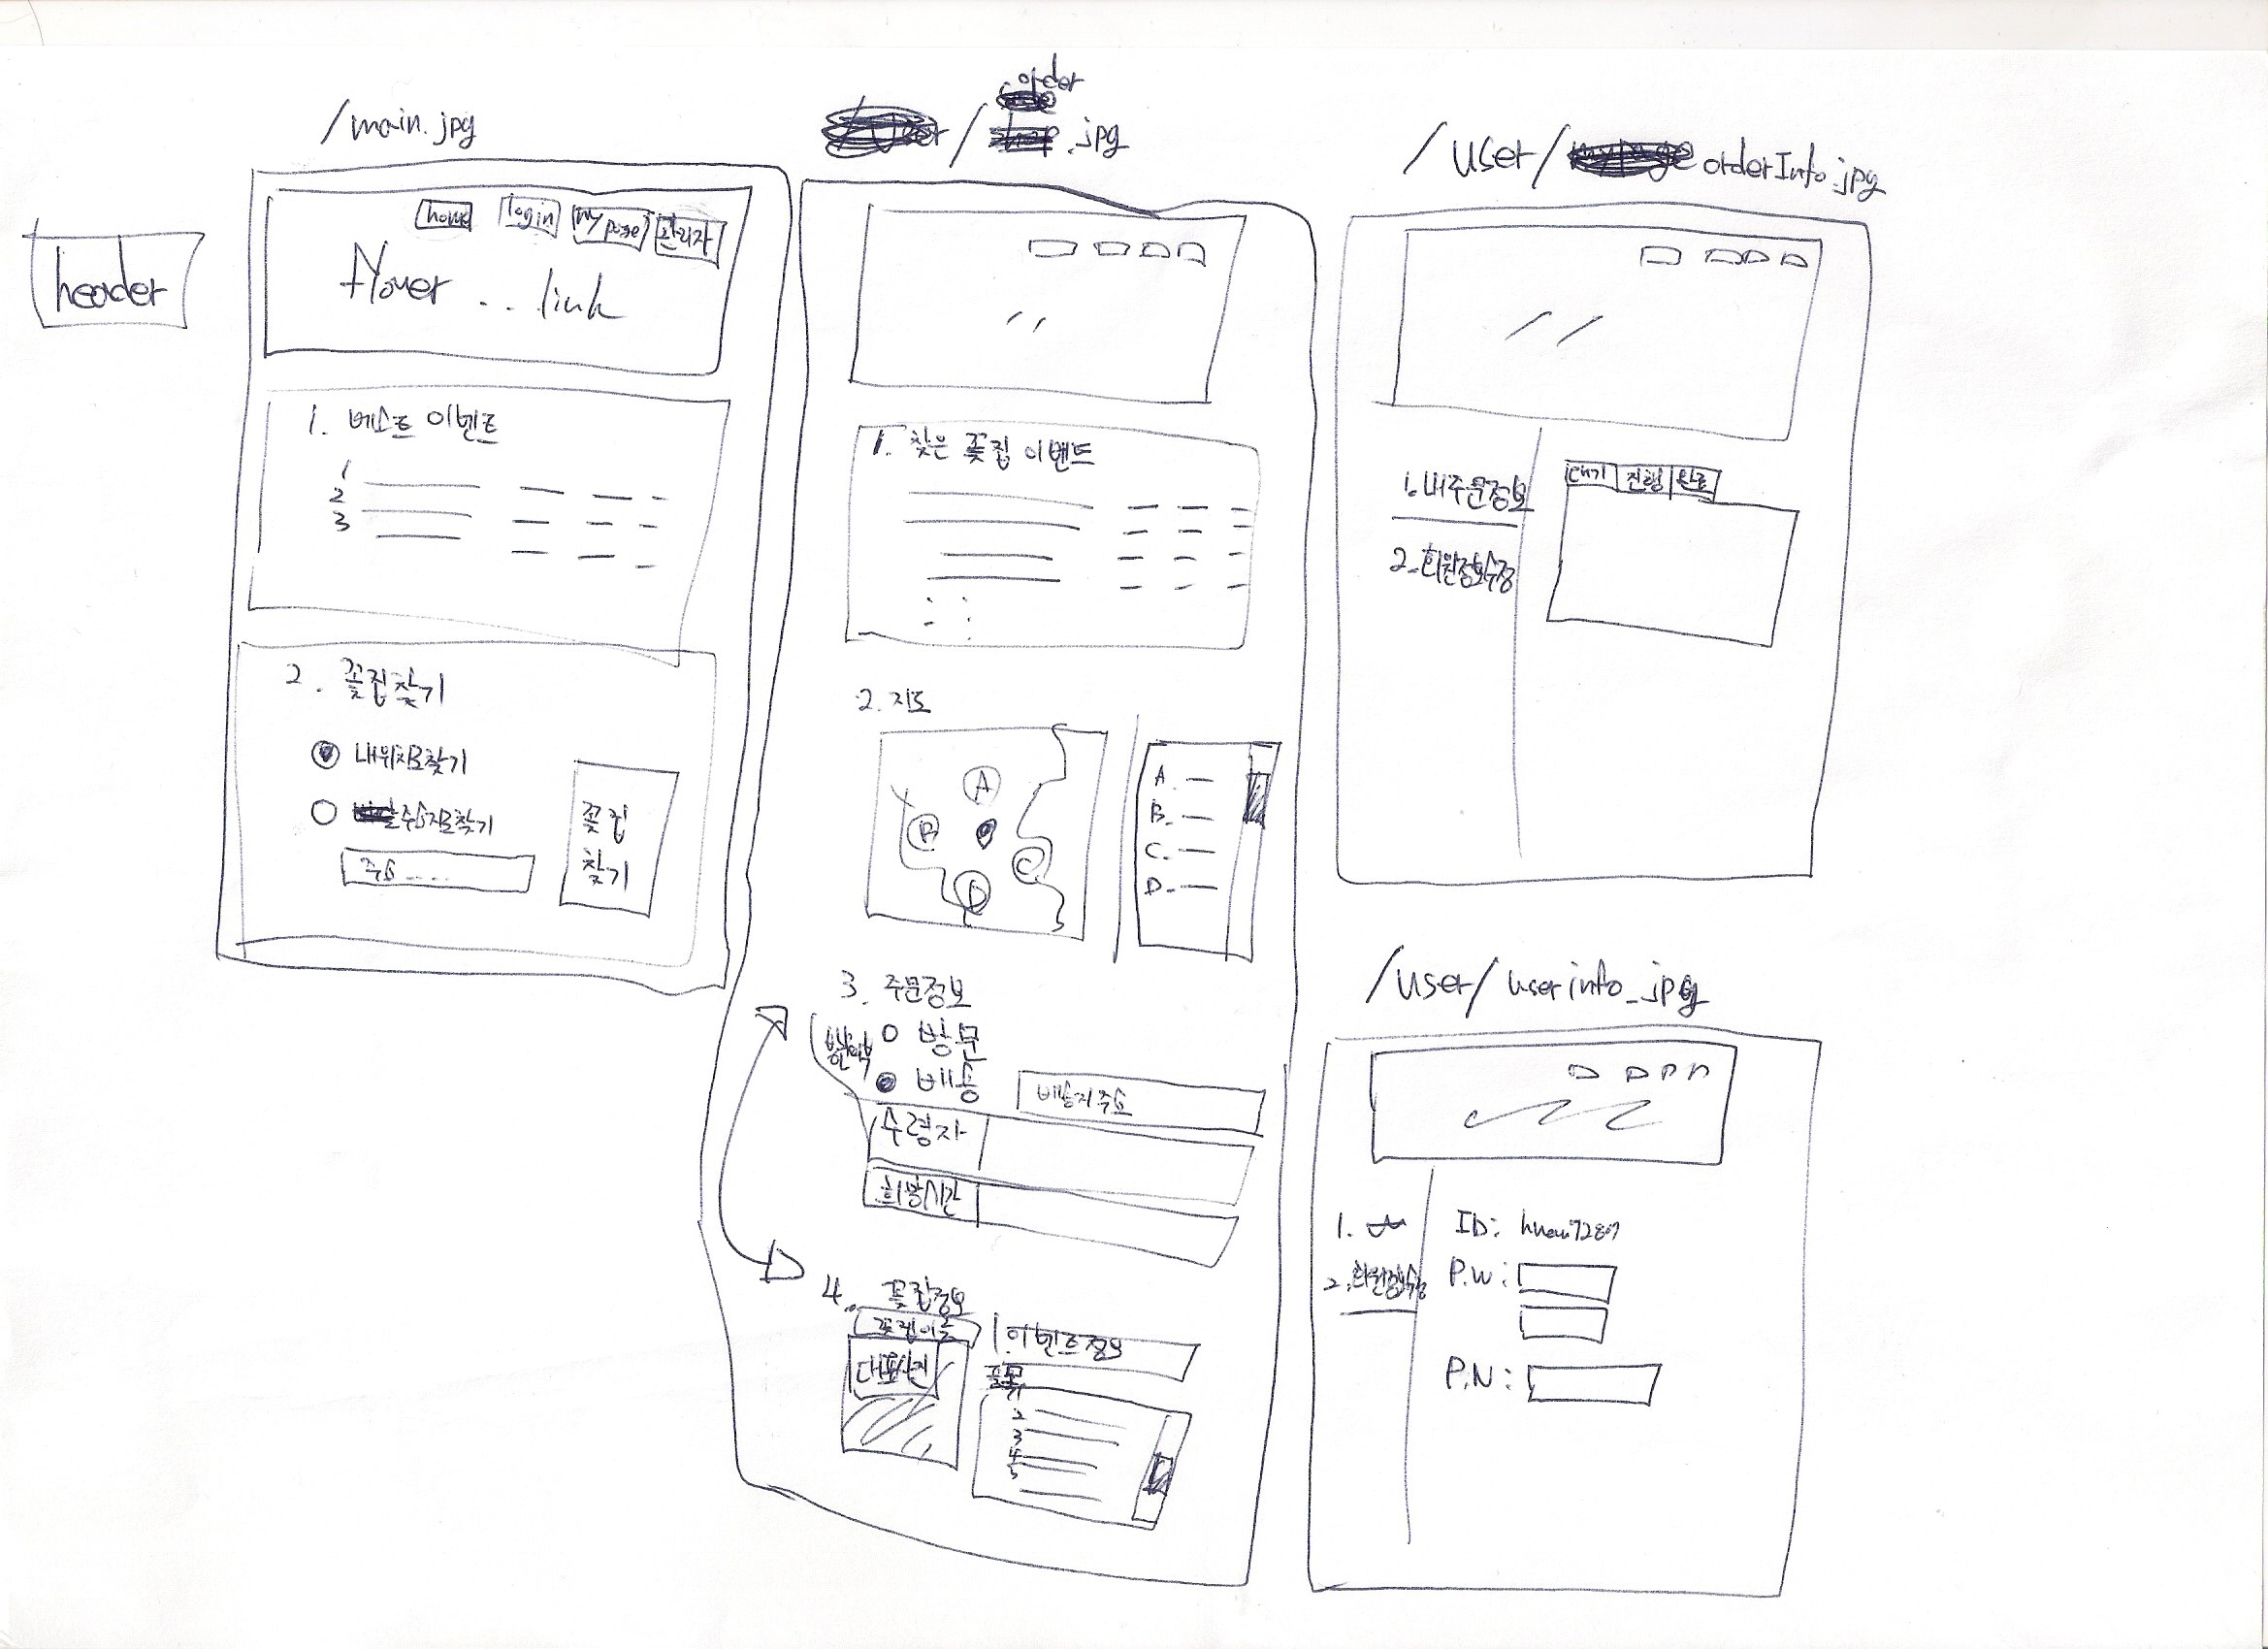 header
/main.jpg
home login my page 관리자
flower . . link
1. 베스트 이벤트
1
2
3
2. 꽃집찾기
내위치로찾기
주소지로찾기
주소 ....
꽃집
찾기
order
/ .jpg
1. 찾은 꽃집 이벤트
2. 지도
A
B
C
D
A. —
B. —
C. —
D. —
3. 주문정보
방문
배송
배송지주소
수령자
희망시간
4. 꽃집정보
꽃집이름
대표사진
이벤트정보
품목
2
3
4
5
/user/ orderInfo.jpg
1. 내주문정보
2. 회원정보수정
대기 진행 완료
/user/ userinfo.jpg
1.
2. 회원정보수정
ID:
P.W:
P.N: